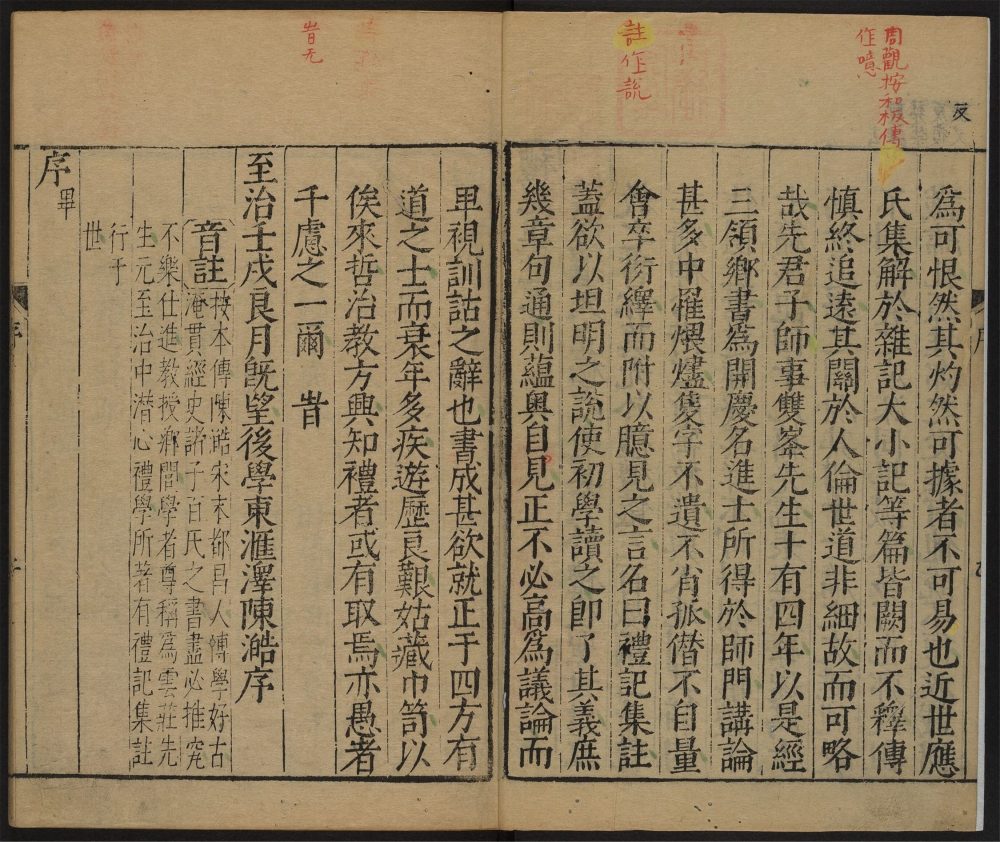 周觀按報傳
作噫
反
註作說
昔无
為可恨然其灼然可據者不可易也近世應
氏集解於雜記大小記等篇皆闕而不釋傳
慎終追遠其關於人倫世道非細故而可略
哉先君子師事雙峯先生十有四年以是經
三領鄉書為開慶名進士所得於師門講論
甚多中罹煨燼隻字不遺不肖孤僣不自量
會卒衍繹而附以臆見之言名曰禮記集註
蓋欲以坦明之說使初學讀之即了其義庶
幾章句通則蘊奥自見正不必高為議論而
卑視訓詁之辭也書成甚欲就正于四方有
道之士而衰年多疾遊歷良艱姑藏巾笥以
俟來哲治教方興知禮者或有取焉亦愚者
千慮之一爾 昔
至治壬戌良月既望後學東滙澤陳澔序
音註 按本傳陳澔宋末都昌人博學好古
淹貫經史諸子百氏之書盡必推究
不樂仕進教授鄉閭學者尊稱為雲莊先
生元至治中潜心禮學所著有禮記集註
行于
世
序畢